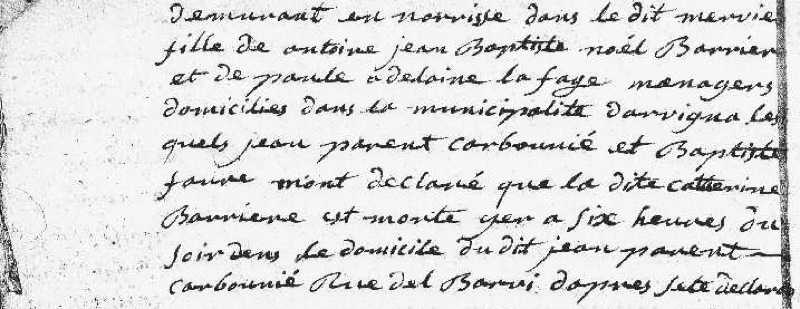 demurant en norrisse dans le dit mervie
fille de antoine jean Baptiste noél Barrier
et de paule adelaine la fage mœnagers
domicilies dans la municipalite darvigna les
quels jean parent Carbounié et Baptiste
faure mont declaré que la dite catterine
Barriere est morte yer a six heures du
soir dens le domicile du dit jean parent
Carbounié Rue del Barri dapres sete declara